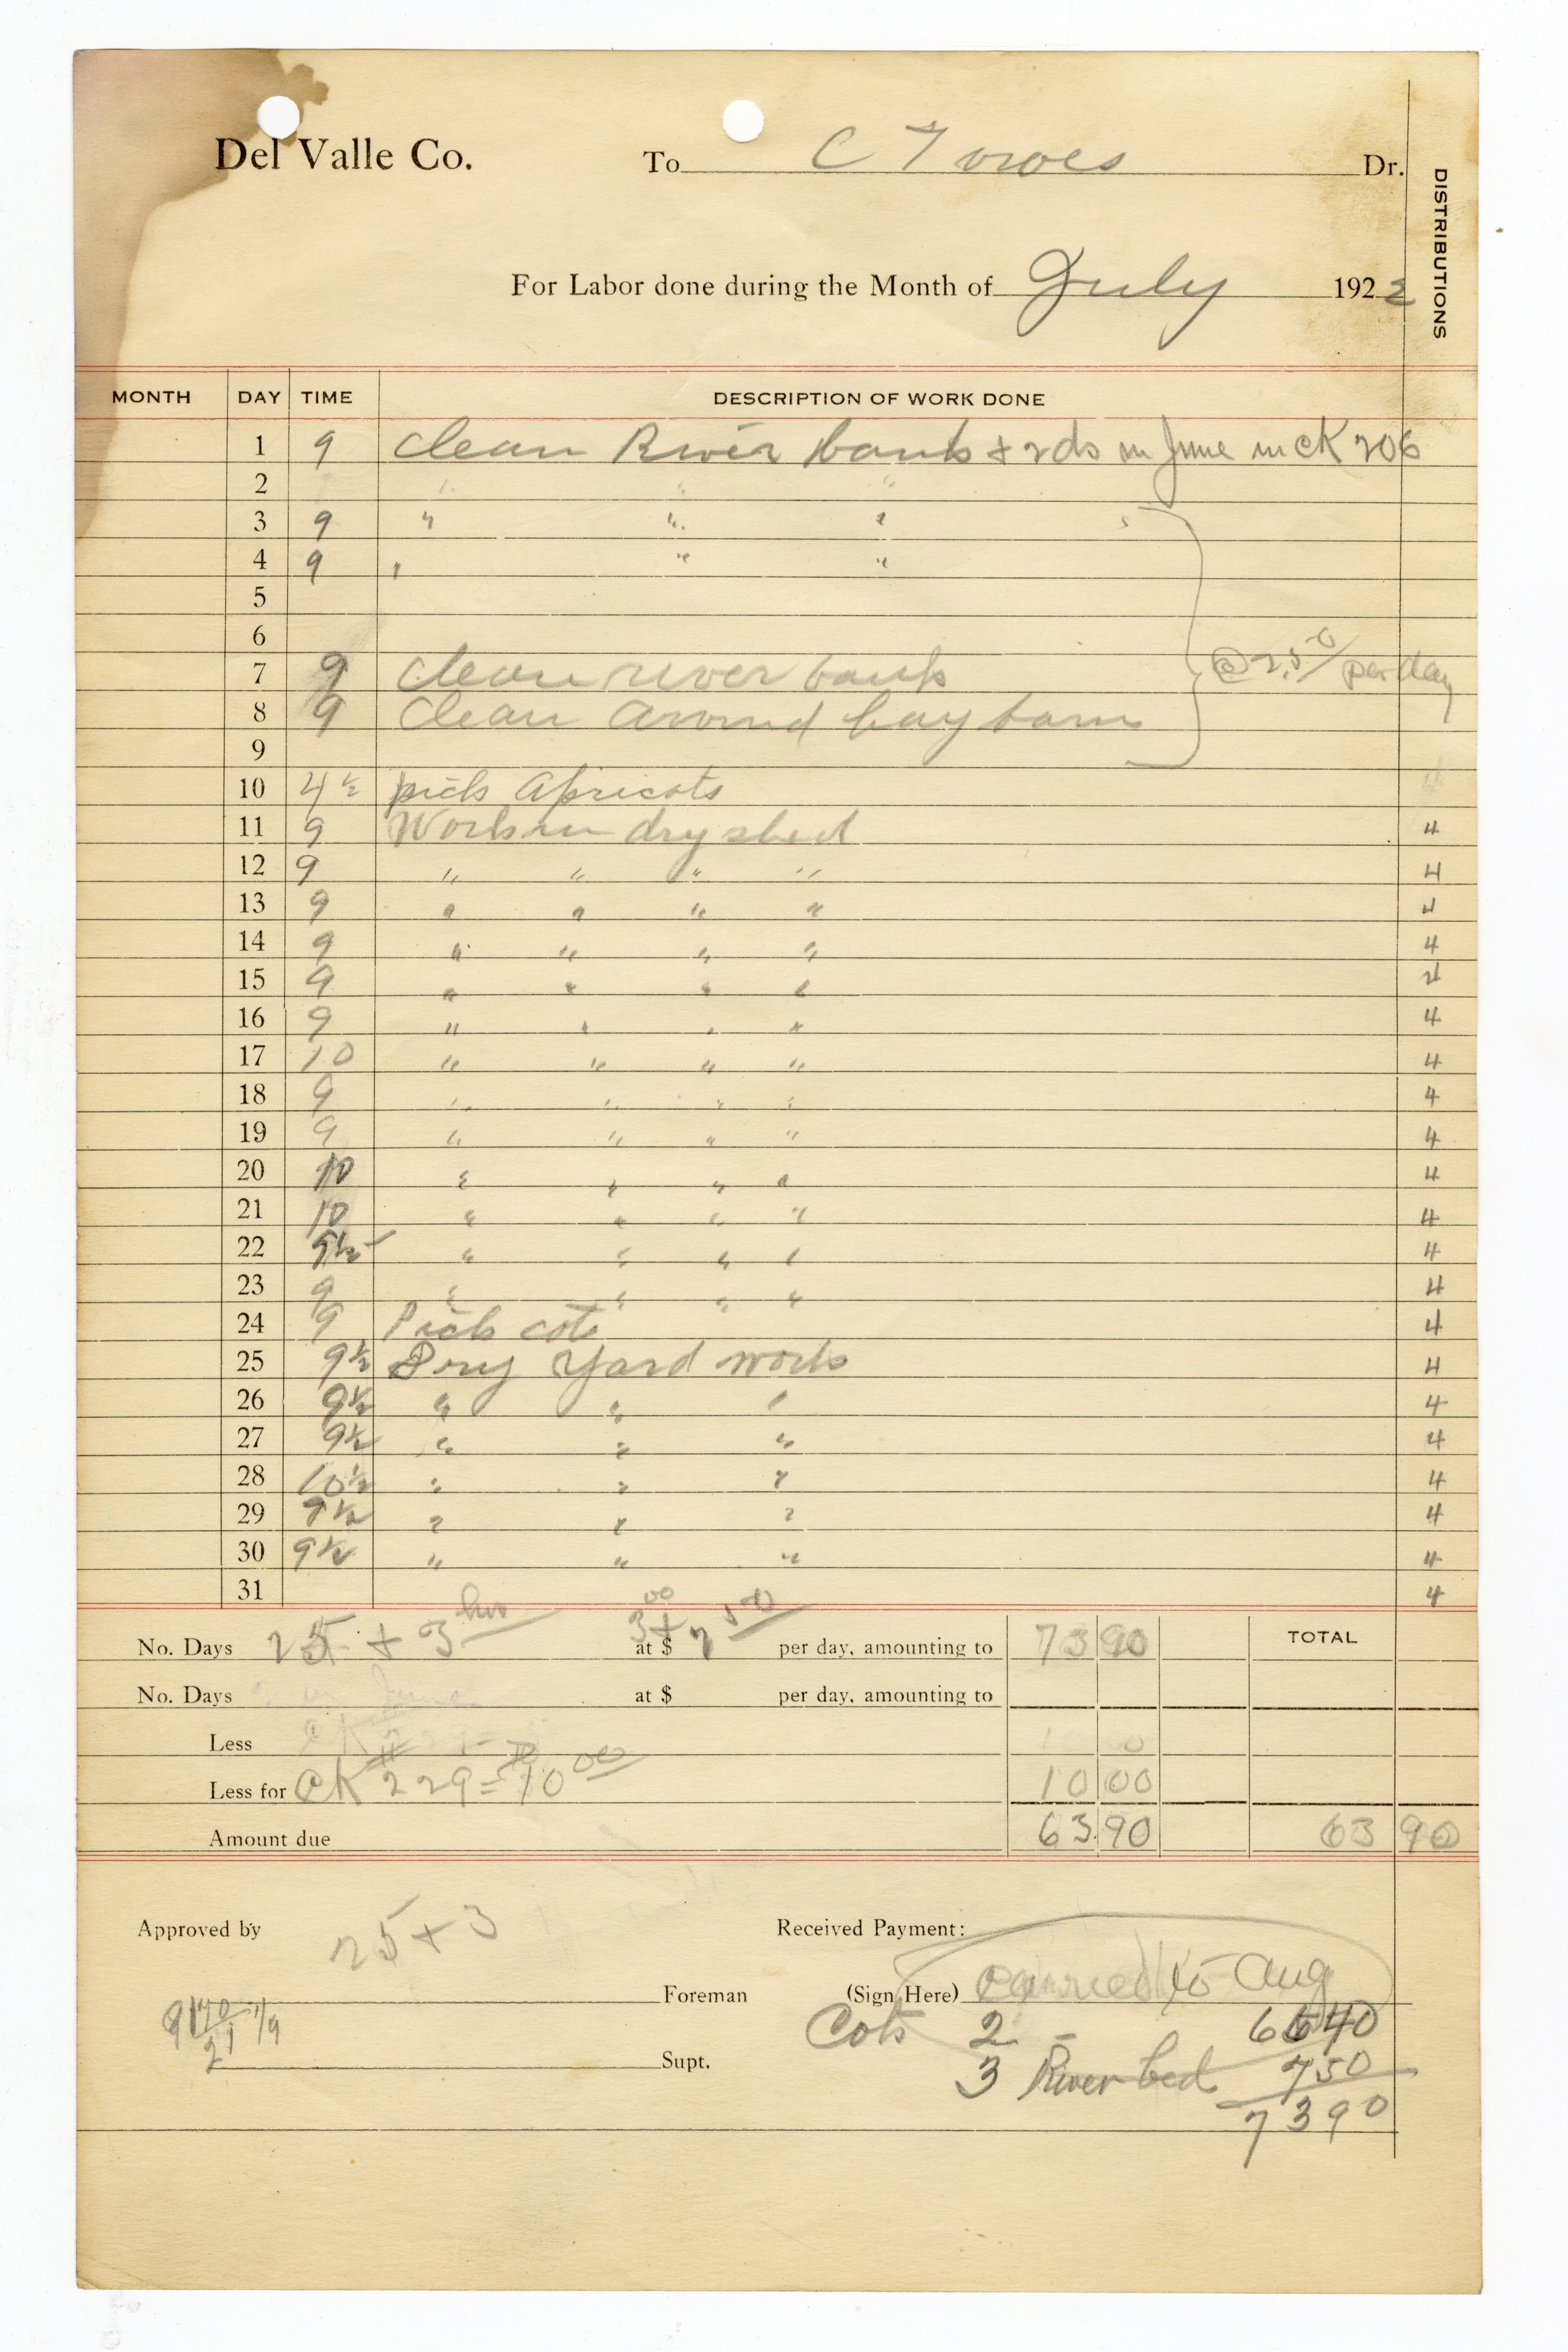 Del Valle Co. To C Dr.
DISTRIBUTIONS
For Labor done during the Month of July 1922
MONTH DAY TIME DESCRIPTION OF WORK DONE
1 9 Clean River bank + 2ds in June in CK 206
2 " " "
3 9 " " "
4 9 " " "
5
6
7 9 Clean river bank @ 2.50 per day
8 9 Clean around hay barn
9
10 4½ pick Apricots 4
11 9 Work in dry shed 4
12 9 " " " " 4
13 9 " " " " 4
14 9 " " " " 4
15 9 " " " " 4
16 9 " " " " 4
17 10 " " " " 4
18 9 " " " " 4
19 9 " " " " 4
20 10 " " " " 4
21 10 " " " " 4
22 9½ " " " " 4
23 9 " " " " 4
24 9 Pick cots 4
25 9½ Dry Yard work 4
26 9½ " " " 4
27 9½ " " " 4
28 10½ " " " 4
29 9½ " " " 4
30 9½ " " " 4
31 4
No. Days 25 + 3 hrs at $ 3 00 + 2 50 per day, amounting to 73 90 TOTAL
No. Days at $ per day, amounting to
Less
Less for CK 229 = 10 00 10 00
Amount due 63 90 63 90
Approved by 25 + 3 Received Payment:
Foreman (Sign Here) carried to Aug
Cots 2 - 66 40
Supt. 3 River bed 7 50
73 90